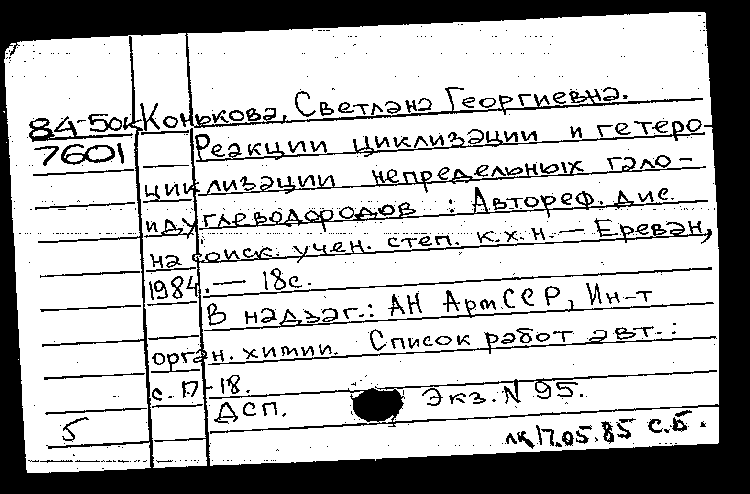 84-5ок Конькова, Светлана Георгиевна.
7601 Реакции циклизации и гетеро-
циклизации непредельных гало-
идуглеводородов : Автореф. дис
на соиск. учен. степ. к.х.н. — Ереван,
1984. — 18с.
В надзаг.: АН АрмССР, Ин-т
орган. химии. Список работ авт.:
с. 17-18.
ДСП. Экз. N 95.
5
17.05.85 С.Б.